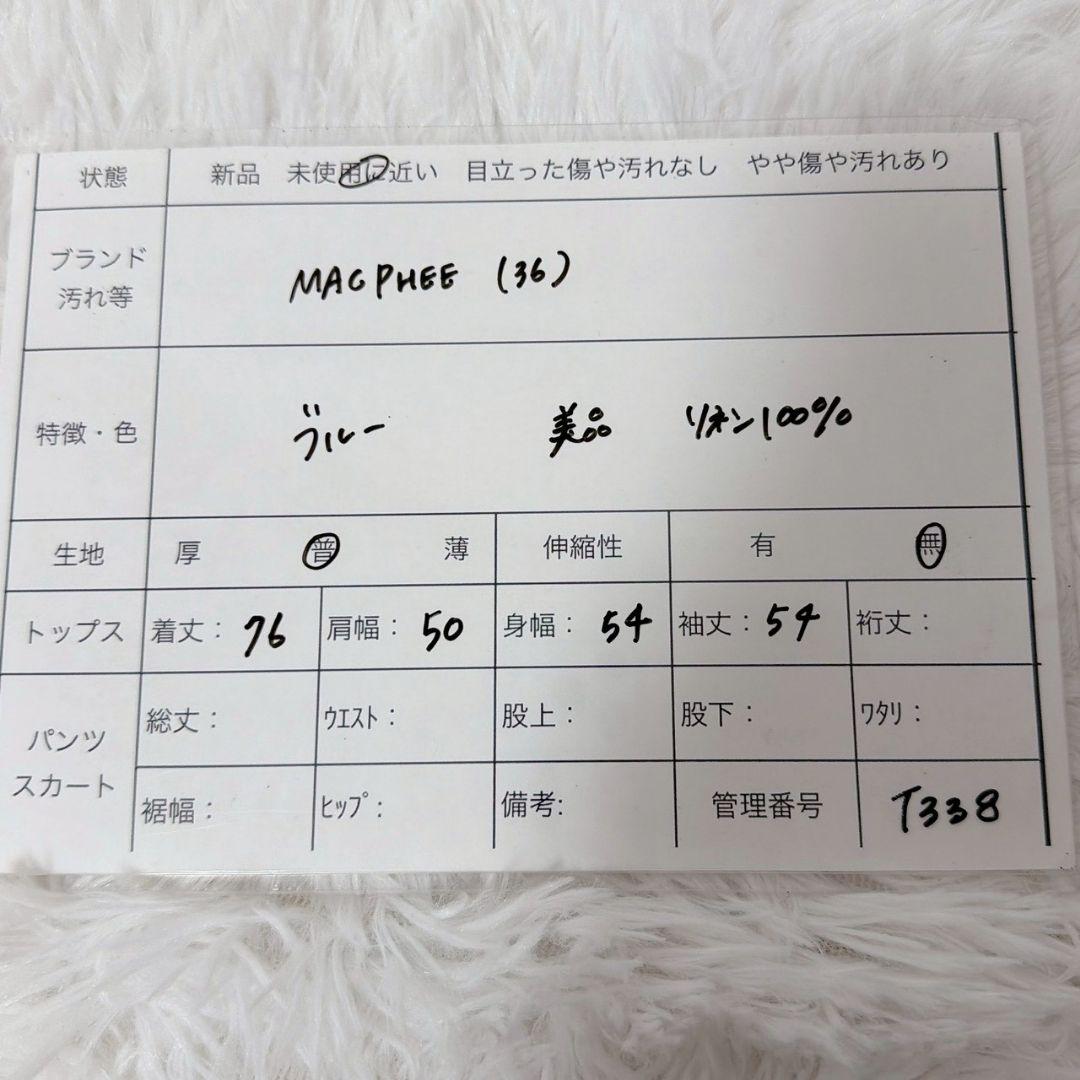 状態 新品 未使用に近い 目立った傷や汚れなし やや傷や汚れあり
ブランド
汚れ等 MACPHEE (36)
特徴・色 ブルー 美品 リネン100%
生地 厚 普 薄 伸縮性 有 無
トップス 着丈： 76 肩幅： 50 身幅： 54 袖丈： 54 裄丈：
パンツ
スカート
総丈： ｳｴｽﾄ： 股上： 股下： ﾜﾀﾘ：
裾幅： ﾋｯﾌﾟ： 備考: 管理番号 T338